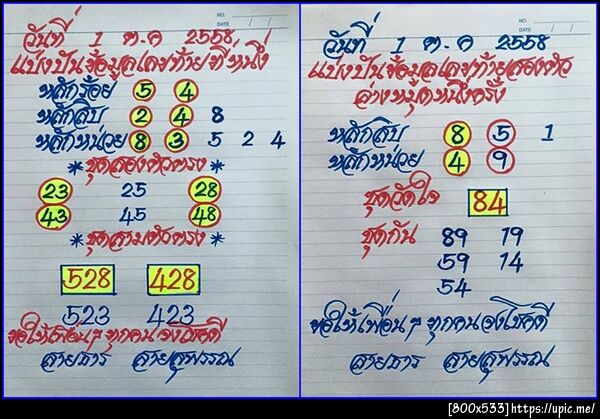 NO.
DATE
วันที่ 1 ต.ค 2558
แบ่งปันข้อมูลเลขท้ายที่หนึ่ง
หลักร้อย 5 4
หลักสิบ 2 4 8
หลักหน่วย 8 3 5 2 4
*ชุดสองตัวตรง*
23 25 28
43 45 48
*ชุดสามตัวตรง*
528 428
523 423
ขอให้เพื่อนๆ ทุกคนจงโชคดี
สายธาร สายสุพรรณ
NO.
DATE
วันที่ 1 ต.ค 2558
แบ่งปันข้อมูลเลขท้ายสองตัว
ล่างหมุดหนึ่งครั้ง
หลักสิบ 8 5 1
หลักหน่วย 4 9
ชุดวัดใจ 84
ชุดกัน 89 19
59 14
54
ขอให้เพื่อนๆ ทุกคนจงโชคดี
สายธาร สายสุพรรณ
[800x533]https://upic.me/